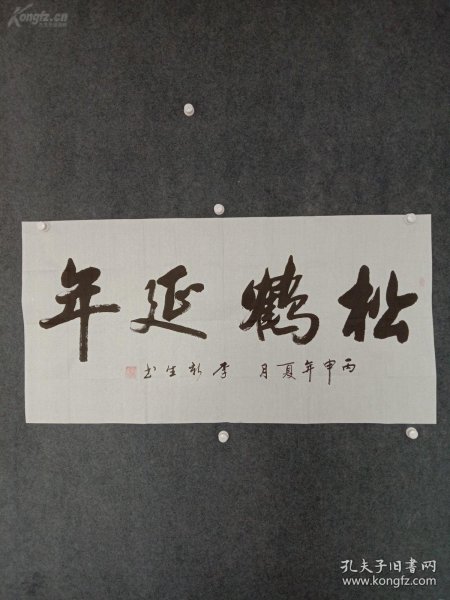 Kongfz.cn
松鹤延年
丙申年夏月 李新生书
孔夫子旧书网
www.kongfz.com